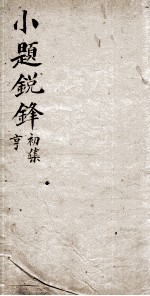 小題銳鋒
初集
亨